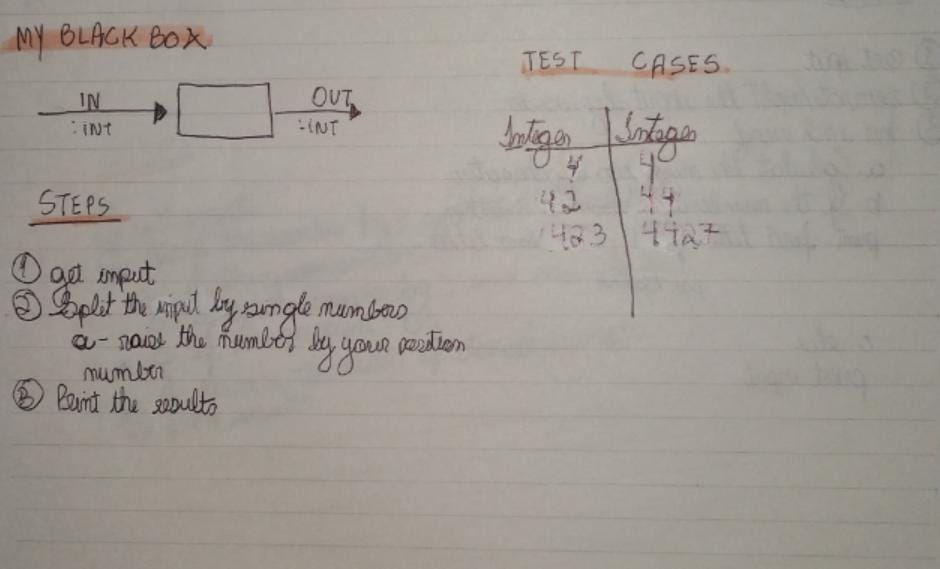 MY BLACK BOX
IN
: iNt
OUT
: iNT
STEPS
① get input
② Split the input by single numbers
a - raise the number by your position
number
③ Print the results
TEST CASES
Integer | Integer
4 | 4
42 | 44
423 | 4427